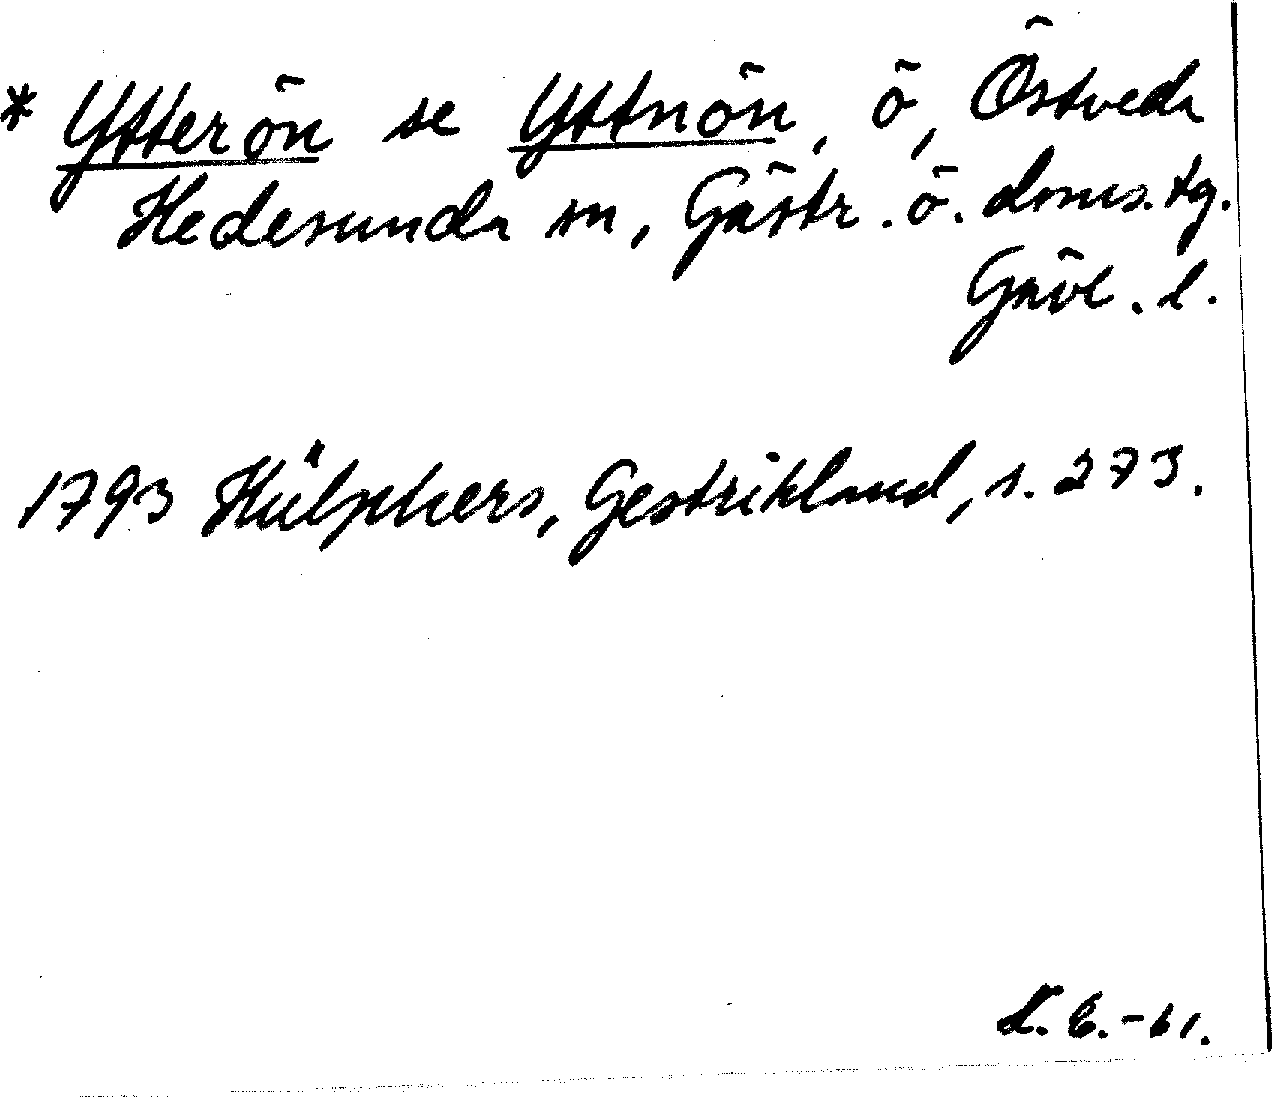 * Ytterön se Yttnön, ö, Östveda
Hedesunda sn, Gästr. ö. doms. tg.
Gävl. l.
1793 Hülphers, Gestrikland, s. 273.
L. E. -61.